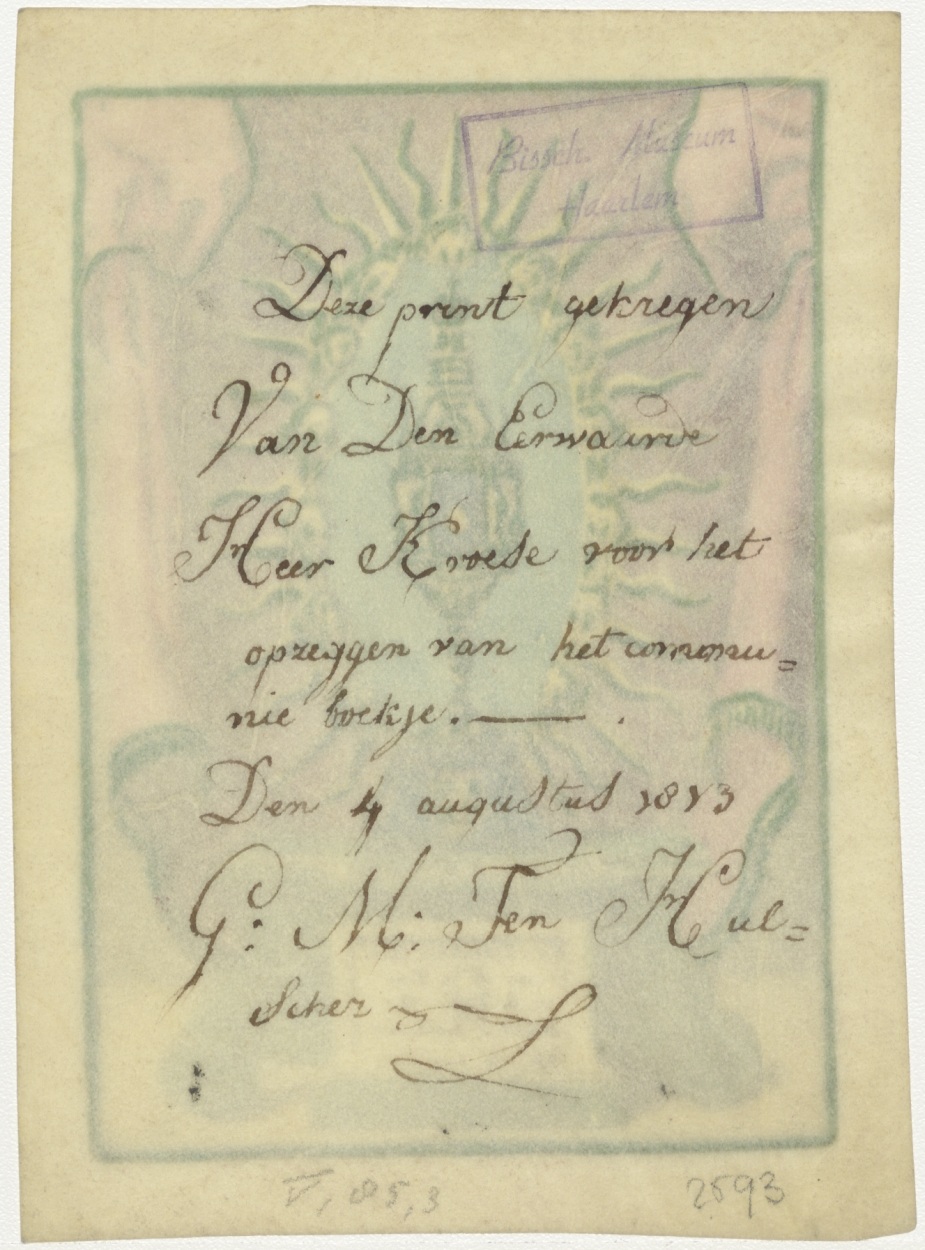 Bissch. Museum
Haarlem
Deze print gekregen
Van Den Eerwaarde
Heer Kroese voor het
opzeggen van het commu=
nie boekje. —— .
Den 4 augustus 1813
G: M: Ten Hul=
scher
V, 85, 3
2593